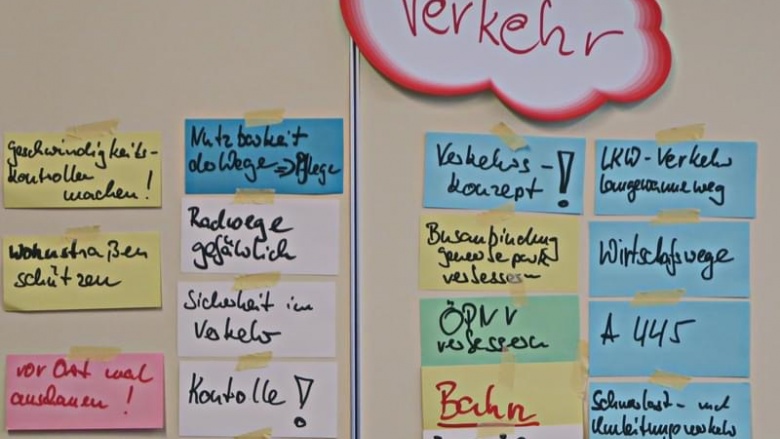 Verkehr
Geschwindigkeits-
kontrollen
machen!
Wohnstraßen
schützen
vor Ort mal
anschauen!
Nutzbarkeit
der Wege => Pflege
Radwege
gefährlich
Sicherheit im
Verkehr
Kontrolle!
Verkehrs-
konzept!
Busanbindung
verbessern
ÖPNV
verbessern
Bahn
LKW-Verkehr
Wirtschaftswege
A 445
Schwerlast- und
Umleitungsverkehr